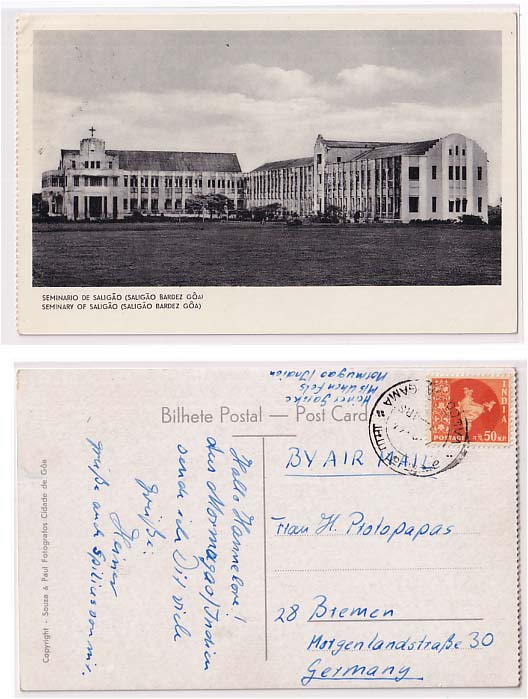 SEMINARIO DE SALIGÃO (SALIGÃO BARDEZ GÔA)
SEMINARY OF SALIGÃO (SALIGÃO BARDEZ GÔA)
Heiner
Mormugao/Indien
Bilhete Postal — Post Card
INDIA
POSTAGE 50 NP.
GAMA
BY AIR MAIL
Hallo Hannelore!
Aus Mormagao/Indien
sende ich Dir viele
Grüße.
Heiner
grüße auch Spilios von mir.
Frau H. Protopapas
28 Bremen
Morgenlandstraße 30
Germany
Copyright - Souza & Paul Fotografos Cidade de Gôa